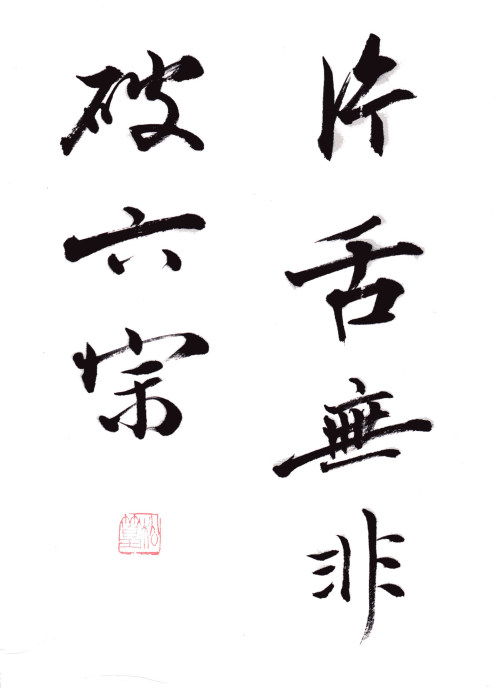 片舌無非
破六宗